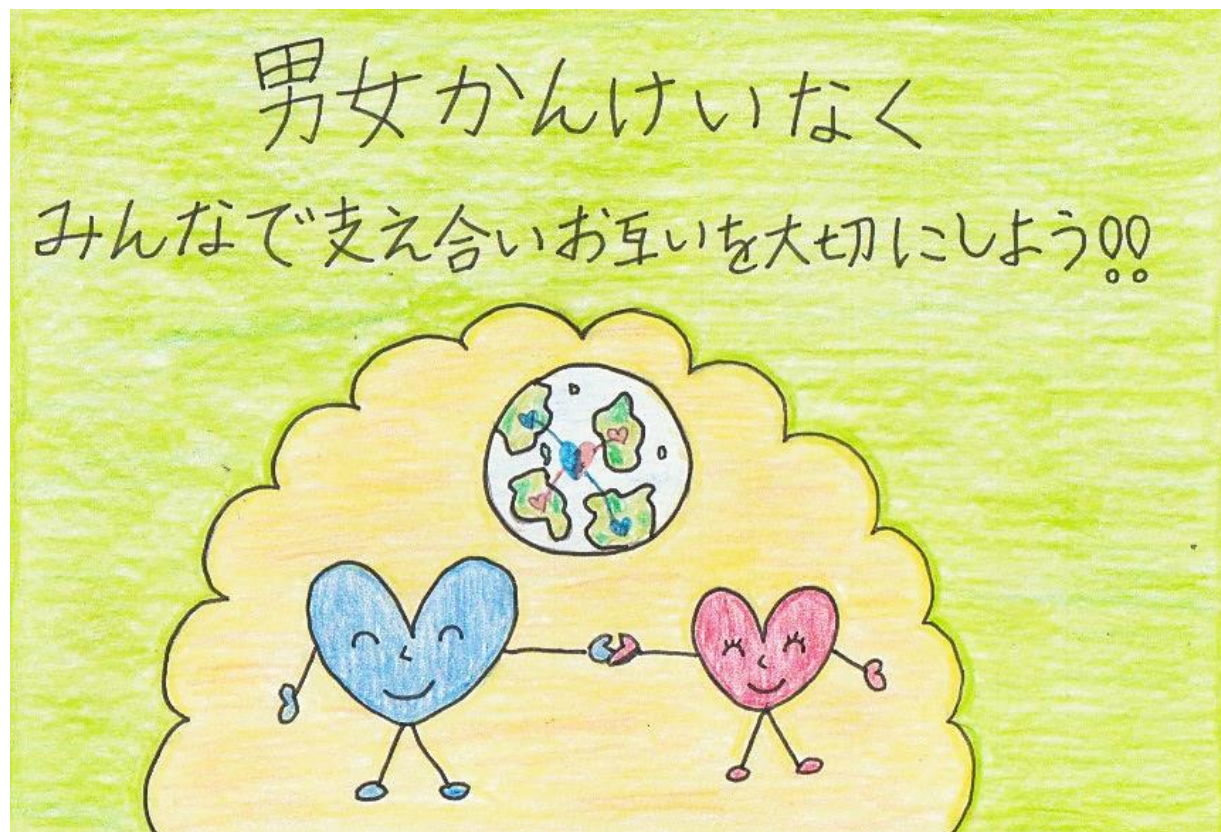 男女かんけいなく
みんなで支え合いお互いを大切にしよう!!